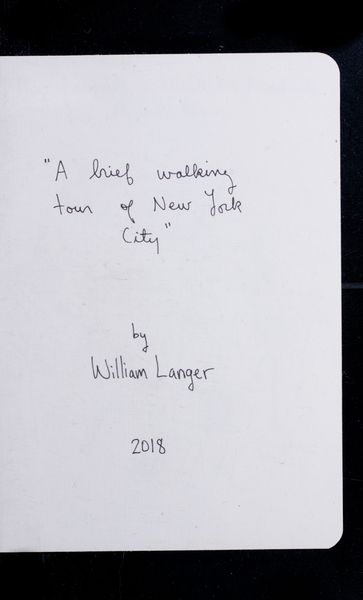 "A brief walking
tour of New York
City"
by
William Langer
2018